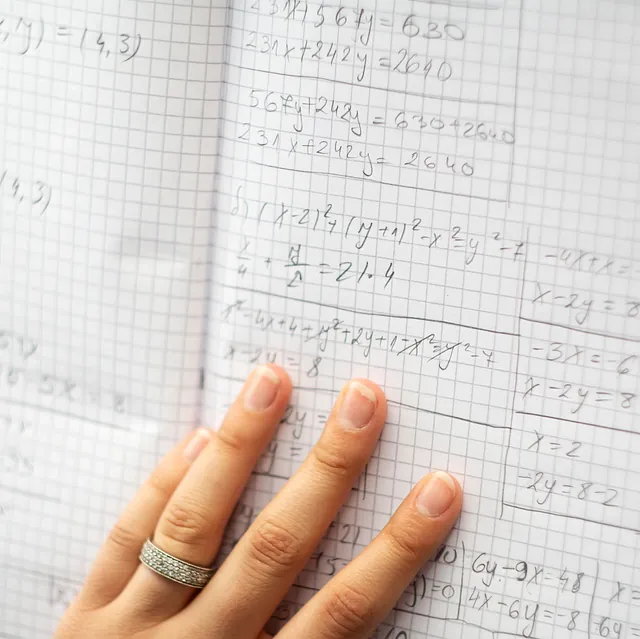 ,y) = (4,3)
(4,3)
5x = 8
231x+567y = 630
231x+242y = 2640
567y+242y = 630+2640
231x+242y = 2640
б) (x-2)²+(y+1)²-x²=y²-7
x/4 + y/2 = 2 |· 4
x²-4x+4+y²+2y+1-x²=y²-7
x-2y = 8
2y =
y =
-4x+x=
x-2y = 8
-3x = -6
x-2y = 8
x = 2
-2y = 8-2
6y-9x=48
4x-6y=-8
x=
-6y
)=0